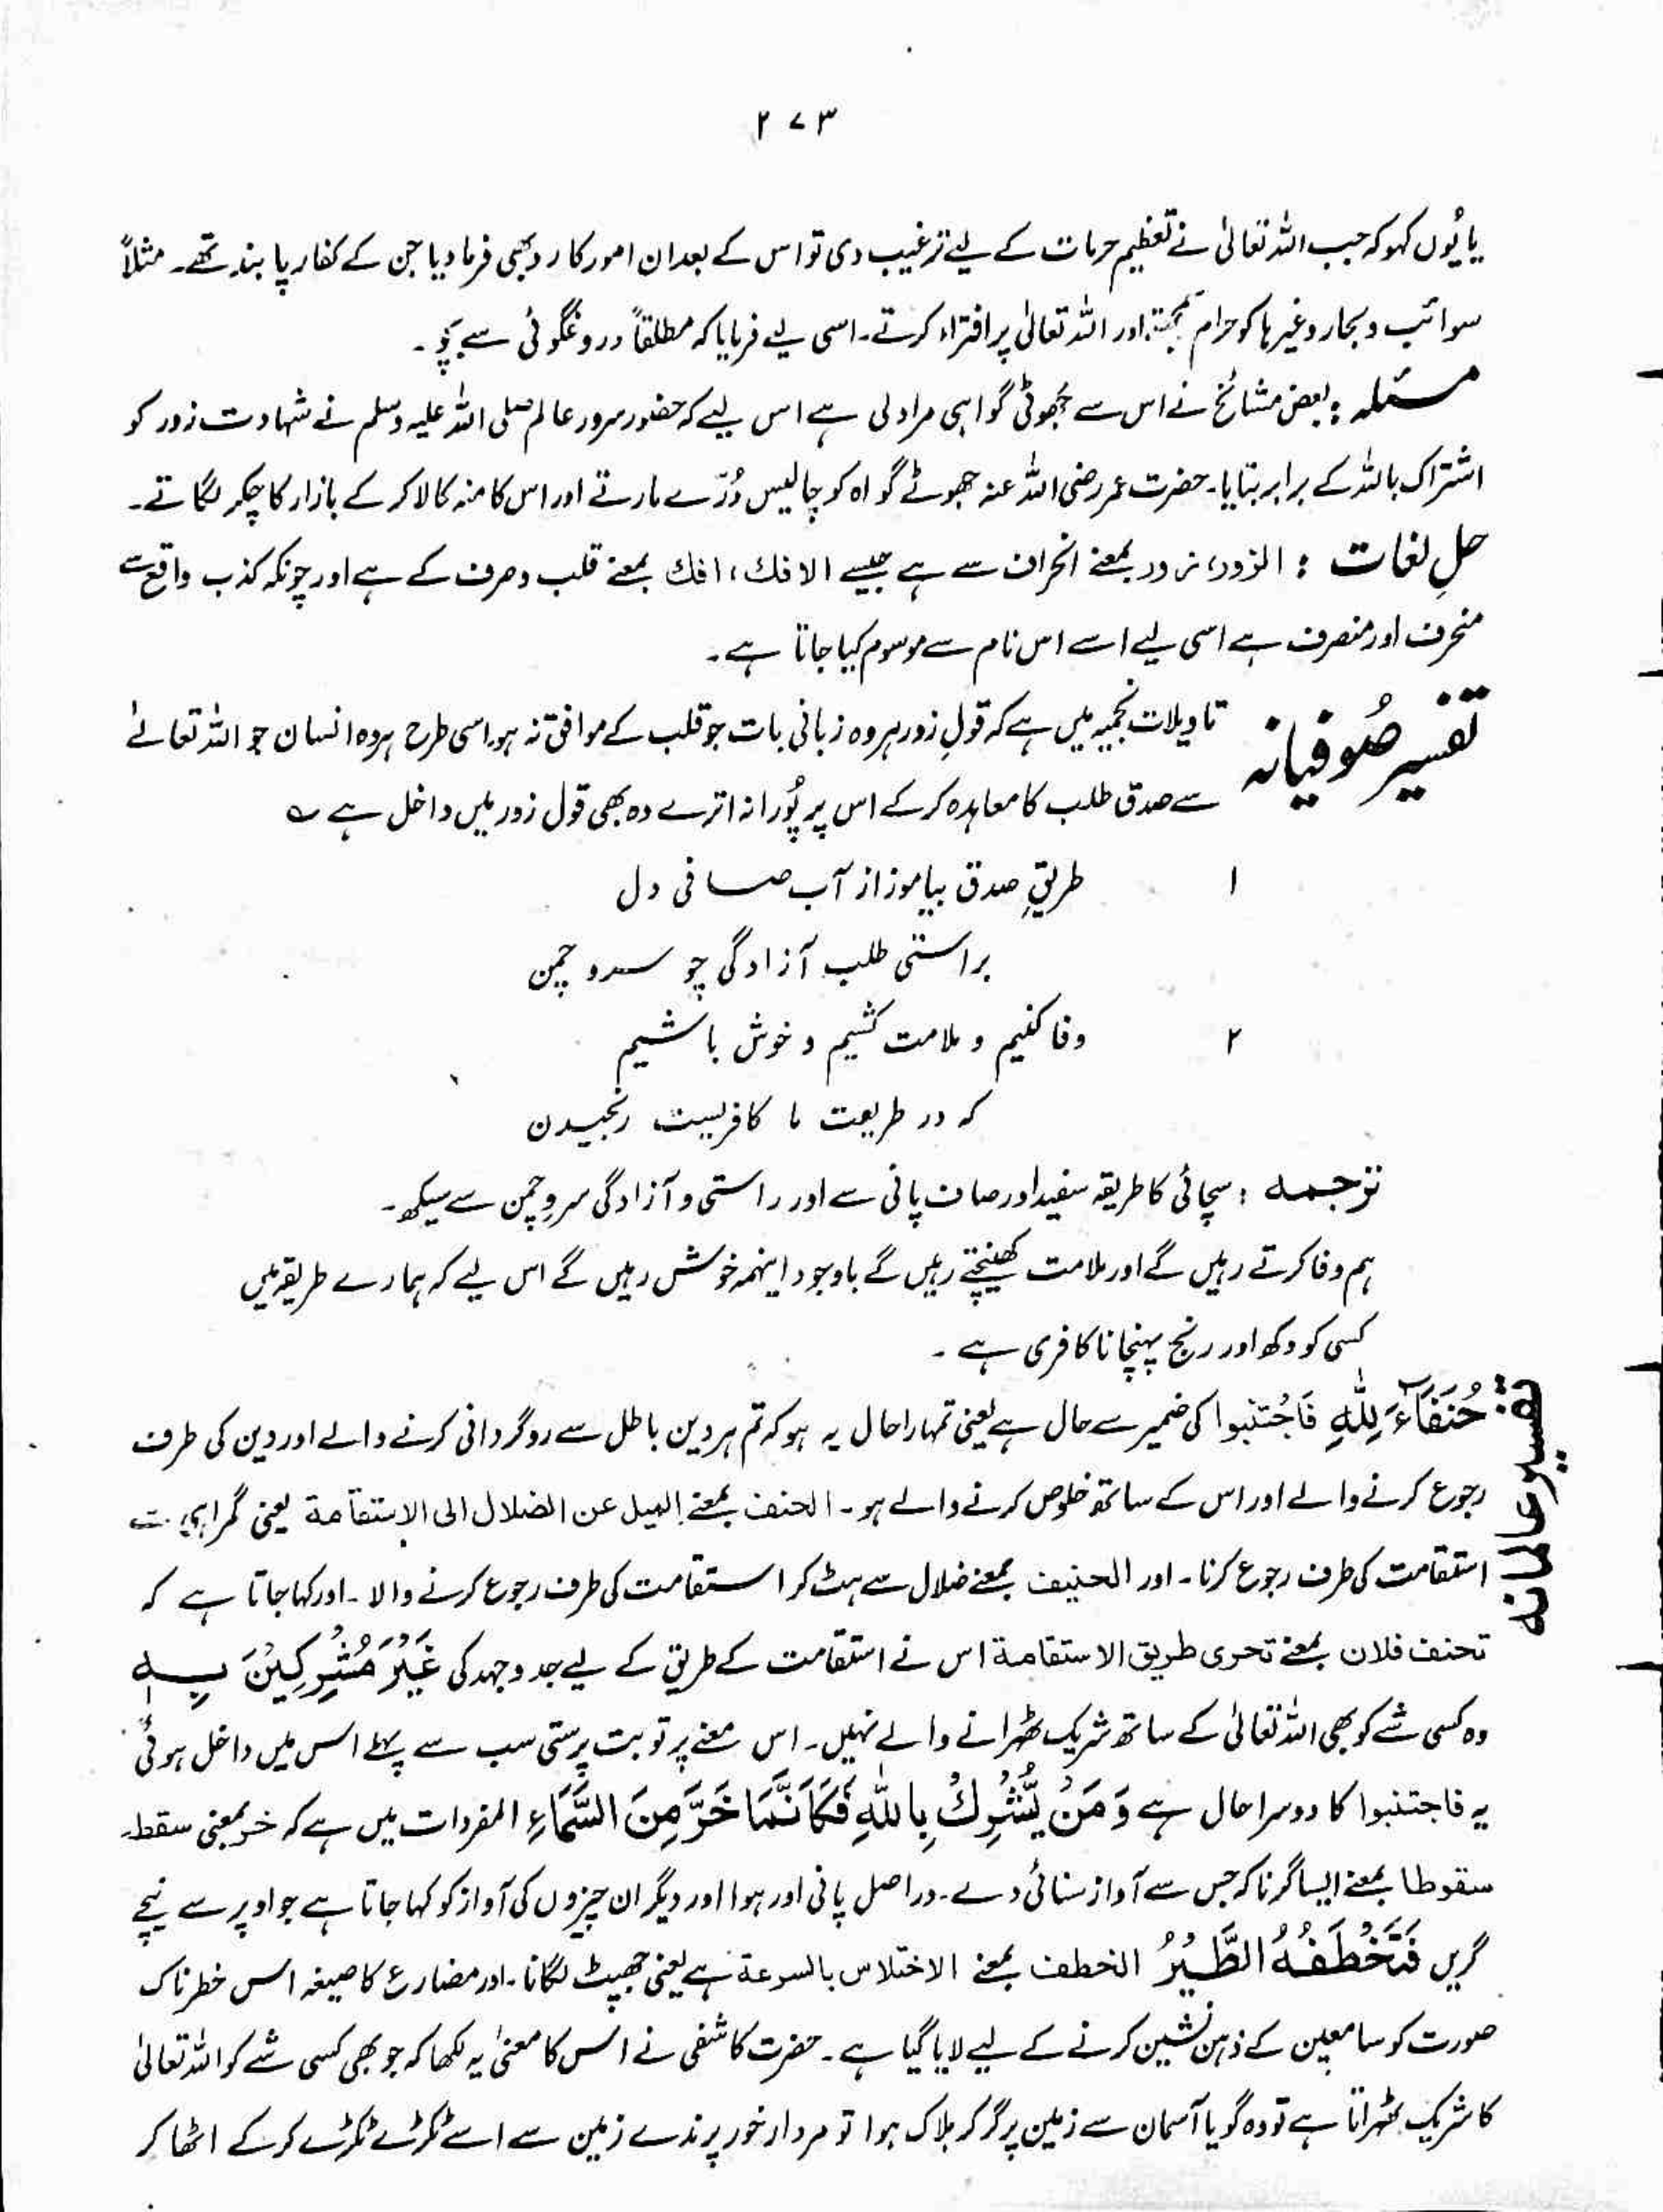 ۲۷۳
یا یُوں کہو کہ جب اللہ تعالیٰ نے تعظیم حرمات کے لیے ترغیب دی تو اس کے بعد ان امور کا رد بھی فرما دیا جن کے کفار پابند تھے۔ مثلاً
سوائب و بحار وغیرہا کو حرام سمجھتے اور اللہ تعالیٰ پر افتراء کرتے۔ اسی لیے فرمایا کہ مطلقاً دروغگوئی سے بچو۔
مسئلہ : بعض مشائخ نے اس سے جھوٹی گواہی مراد لی ہے اس لیے کہ حضور سرور عالم صلی اللہ علیہ وسلم نے شہادت زور کو
اشتراک باللہ کے برابر بتایا۔ حضرت عمر رضی اللہ عنہ جھوٹے گواہ کو چالیس دُرّے مارتے اور اس کا منہ کالا کر کے بازار کا چکر لگاتے۔
حلِ لغات : الزور، زور بمعنے انحراف سے ہے جیسے الافک، افک بمعنے قلب و صرف کے ہے اور چونکہ کذب واقع سے
منحرف اور منصرف ہے اسی لیے اسے اس نام سے موسوم کیا جاتا ہے۔
تفسیر صُوفیانہ تاویلات نجمیہ میں ہے کہ قولِ زور ہر وہ زبانی بات جو قلب کے موافق نہ ہو، اسی طرح ہر وہ انسان جو اللہ تعالےٰ
سے صدق طلب کا معاہدہ کر کے اس پر پُورا نہ اترے وہ بھی قول زور میں داخل ہے ؎
۱ طریقِ صدق بیاموز از آب صافی دل
براستی طلب آزادگی چو سرو چمن
۲ وفا کنیم و ملامت کشیم و خوش باشیم
کہ در طریعت ما کافریست رنجیدن
ترجمہ : سچائی کا طریقہ سفید اور صاف پانی سے اور راستی و آزادگی سروِ چمن سے سیکھ۔
ہم وفا کرتے رہیں گے اور ملامت کھینچتے رہیں گے باوجود اینہمہ خوش رہیں گے اس لیے کہ ہمارے طریقہ میں
کسی کو دکھ اور رنج پہنچانا کافری ہے۔
تفسیر عالمانہ
حُنَفَآءَ لِلّٰهِ فَاجْتَنِبوا کی ضمیر سے حال ہے یعنی تمہارا حال یہ ہو کہ تم ہر دین باطل سے روگردانی کرنے والے اور دین کی طرف
رجوع کرنے والے اور اس کے ساتھ خلوص کرنے والے ہو۔ الحنف بمعنے المیل عن الضلال الی الاستقامة یعنی گمراہی سے
استقامت کی طرف رجوع کرنا۔ اور الحنیف بمعنے ضلال سے ہٹ کر استقامت کی طرف رجوع کرنے والا۔ اور کہا جاتا ہے کہ
تحنف فلان بمعنے تحری طریق الاستقامة اس نے استقامت کے طریق کے لیے جدوجہد کی غَيْرَ مُشْرِكِيْنَ بِهٖ
وہ کسی شے کو بھی اللہ تعالیٰ کے ساتھ شریک ٹھہرانے والے نہیں۔ اس معنے پر تو بت پرستی سب سے پہلے اس میں داخل ہوئی
یہ فاجتنبوا کا دوسرا حال ہے وَ مَنْ يُّشْرِكْ بِاللّٰهِ فَكَاَنَّمَا خَرَّ مِنَ السَّمَآءِ المفردات میں ہے کہ خر بمعنی سقط
سقوطا بمعنے ایسا گرنا کہ جس سے آواز سنائی دے۔ دراصل پانی اور ہوا اور دیگر ان چیزوں کی آواز کو کہا جاتا ہے جو اوپر سے نیچے
گریں فَتَخْطَفُهُ الطَّيْرُ الخطف بمعنے الاختلاس بالسرعة ہے یعنی جھپٹ لگانا۔ اور مضارع کا صیغہ اس خطرناک
صورت کو سامعین کے ذہن نشین کرنے کے لیے لایا گیا ہے۔ حضرت کاشفی نے اس کا معنیٰ یہ لکھا کہ جو بھی کسی شے کو اللہ تعالیٰ
کا شریک ٹھہراتا ہے تو وہ گویا آسمان سے زمین پر گر کر ہلاک ہوا تو مردار خور پرندے زمین سے اسے ٹکڑے ٹکڑے کر کے اٹھا کر